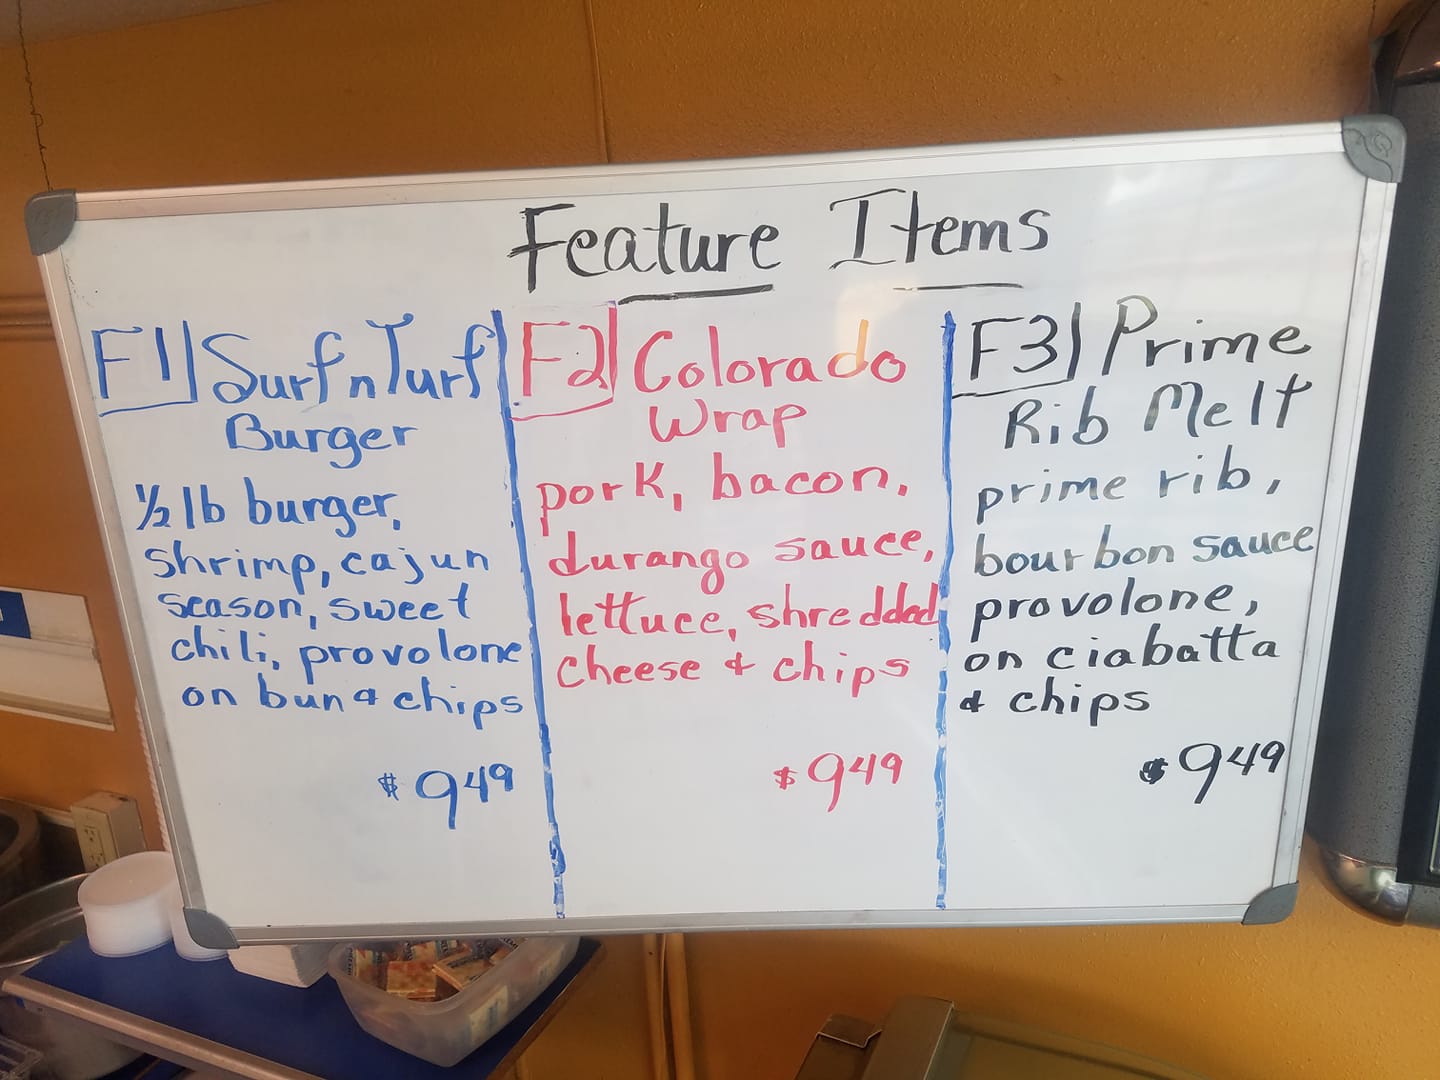 Feature Items
F1 Surf n Turf
Burger
1/2 lb burger,
shrimp, cajun
season, sweet
chili, provolone
on bun & chips
$949
F2 Colorado
Wrap
pork, bacon,
durango sauce,
lettuce, shredded
cheese & chips
$949
F3 Prime
Rib Melt
prime rib,
bourbon sauce
provolone,
on ciabatta
& chips
$949